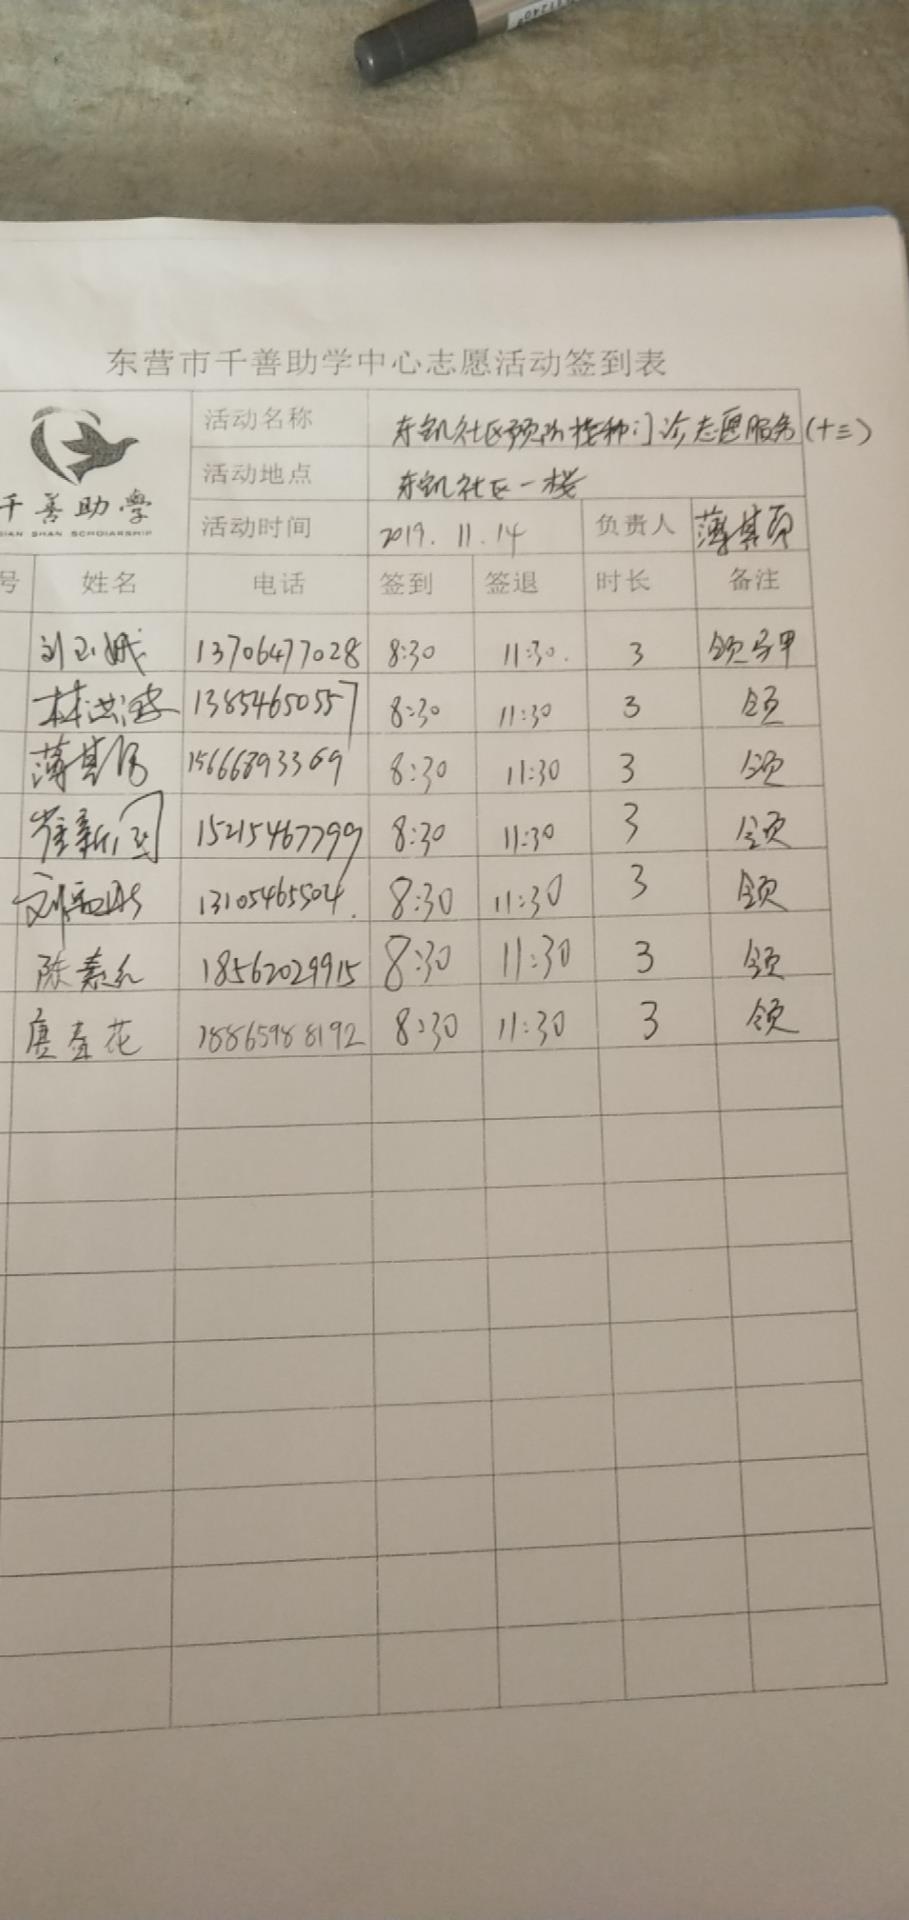 东营市千善助学中心志愿活动签到表
千善助學
QIAN SHAN SCHOLARSHIP
活动名称 社区预防接种门诊志愿服务(十三)
活动地点 社区一楼
活动时间 2019.11.14 负责人
号 姓名 电话 签到 签退 时长 备注
刘玉娥 13706477028 8:30 11:30. 3 领马甲
林 13854650557 8:30 11:30 3 领
薄其 15666893369 8:30 11:30 3 领
崔新 15215467799 8:30 11:30 3 领
13105465504. 8:30 11:30 3 领
陈素 18562029915 8:30 11:30 3 领
唐春花 18865988192 8:30 11:30 3 领